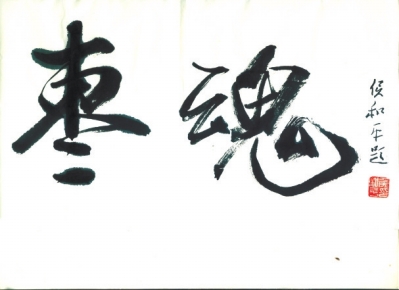 枣魂
侯和平题